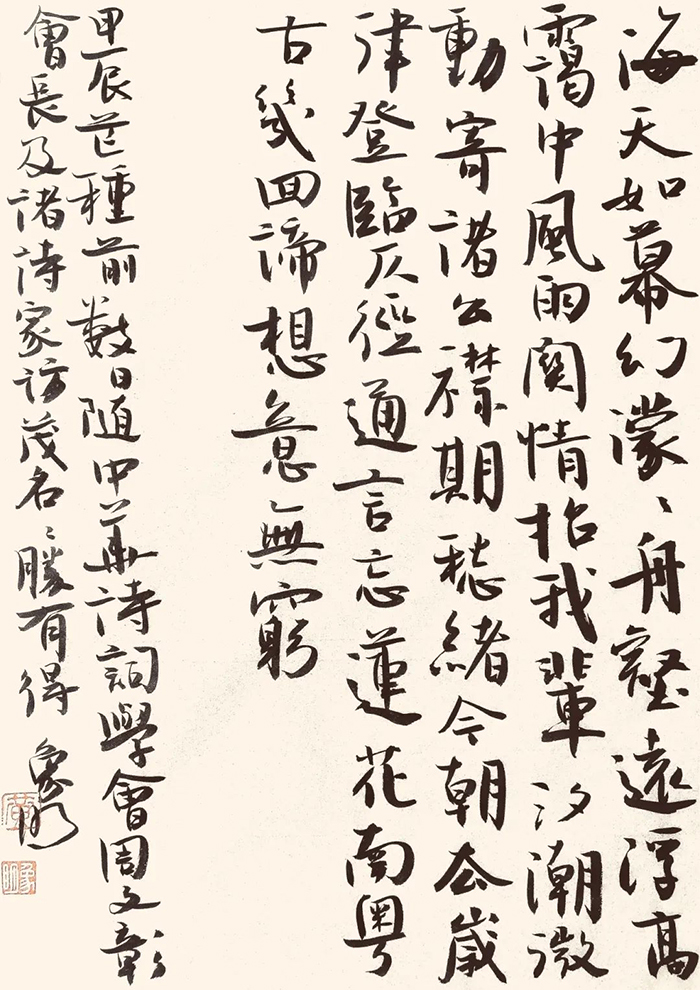 海天如幕幻濛〻舟壑遠浮高
靄中風雨關情招我輩汐潮微
動寄諸公襟期緒今朝去歲
津登臨仄徑通言忘蓮花南粵
古幾回諦想意無窮
甲辰芒種前數日随中華詩詞學會周文彰
會長及諸詩家訪茂名〻勝有得 象明
黄
象明